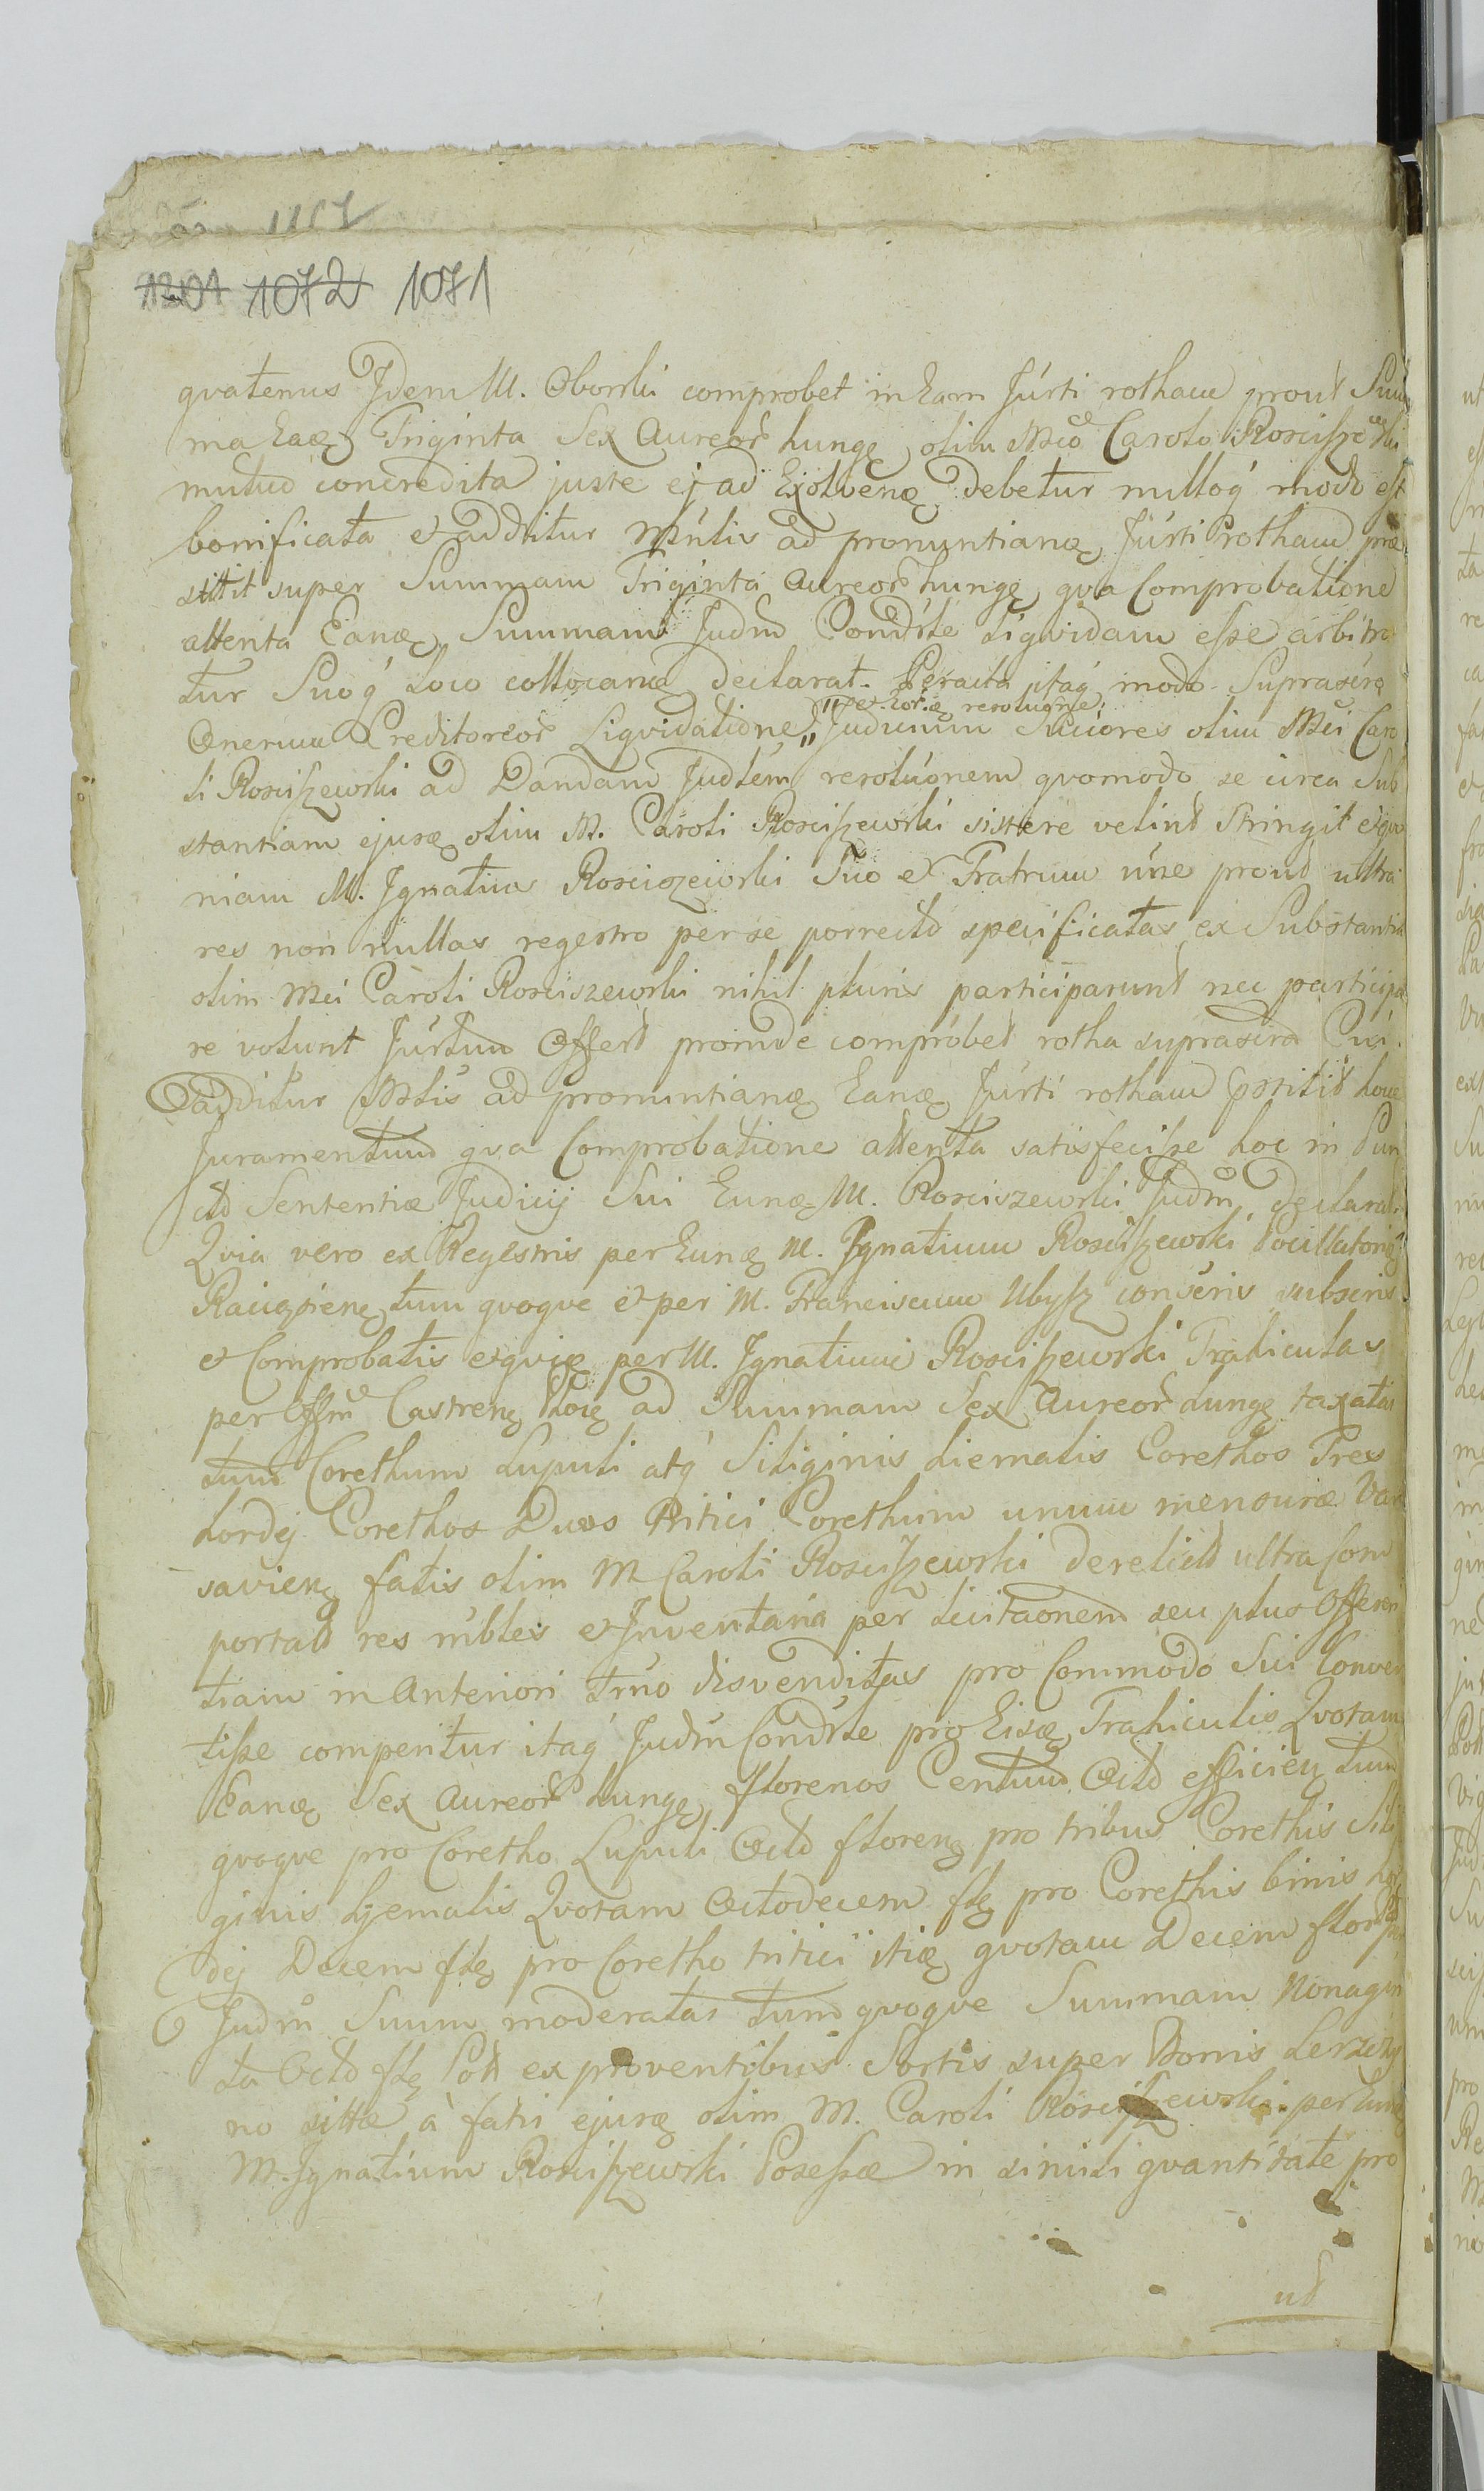 1201 1072 1071
qvatenus Jdem M. Oborski comprobet in Eam Jurti rotham prout Sum
ma Eaq Triginta Sex Aureor hungq olim Mco Carolo Rosciszewski
mutuo concredita juste ej ad Exolvenq debetur nulloq modo est
bonificata et additur Mnlis ad pronuntianq Jurti rotham prae
stitit super Summam Triginta Aureor hungq qva Comprobatione
attenta Eanq Summam Judm Condrle liqvidam esse arbitra
tur Suoq Loco collocanq declarat. Peracta itaq modo Suprascro
Onerum Creditoreor Liqvidatione " Judicium Succores olim Mci Caro
" et resolugne
li Rosciszewski ad Dandam Judlem resoluonem qvomodo se circa Sub
stantiam ejusq olim M. Caroli Rosciszewski sistere velint Stringit et qvo
niam M. Jgnatius Rosciszewski Suo et Fratrum nne prout ultra
res non nullas regestro per se porrecto specificatas ex Substantia
olim Mci Caroli Rosciszewski nihil pluris participarunt nec participa
re volunt Jurtum Offert proinde comprobet rotha suprascra Cui
additur Mlis ad pronuntianq Eanq Jurti rotham pstitit hocce
Juramentum qva Comprobatione attenta satisfecisse hoc in Pun
cto Sententiae Judicij Sui Eunq M. Rosciszewski Judm declarat.
Qvia vero ex Regestris per Eunq M. Jgnatium Rosciszewski Pocillatorem
Raciqzienq tum qvoqve et per M. Franciscum Ubysz conscris subscris
et Comprobatis et qviq per M. Jgnatium Rosciszewski Trahiculas
per Offm Castrenq ad Summam Sex Aureor hungq taxatas
tum Corethum Lupuli atq Siliginis hiemalis Corethos Tres
hordej Corethos Duos Tritici Corethum unum mensurae Var
savienq fatis olim M Caroli Rosciszewski derelicto ultra Com
portato res mbles et Jnventaria per licitaonem seu plus Offeren
tiam in Anteriori Trno disvenditas pro Commodo Sui Conver
tisse comperitur itaq Judm Condrle pro Eisq Trahiculis Qvotam
Eanq Sex Aureor hungq florenos Centum Octo efficienq tum
qvoqve pro Coretho Lupuli Octo florenq pro tribus Corethis Sili
ginis hjemalis Qvotam Octodecem flq pro Corethis binis hor
dej Decem flq pro Coretho tritici itiq qvotam Decem flor per
Judm Suum moderatas tum qvoqve Summam Nonagin
ta Octo flq Poll ex proventibus Sortis super Bonis
no sittae à fatis ejusq olim M. Caroli Rosciszewski per Eunq
M. Jgnatium Rosciszewski Possessae in simili qvantitate pro
ut